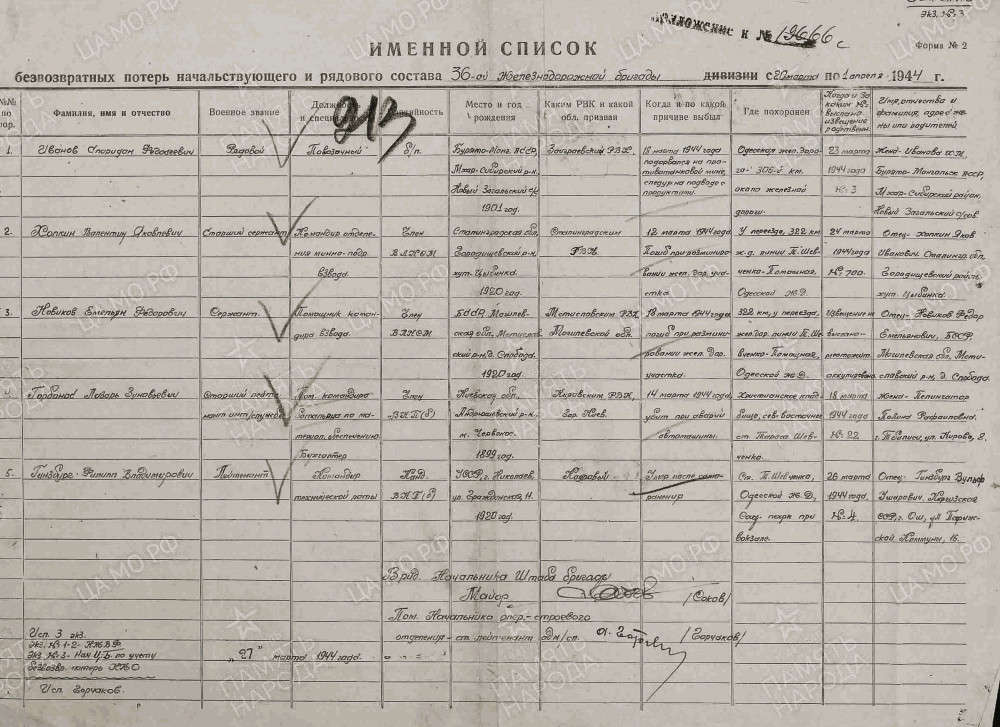 Экз. № 3
Приложение к № 19666 с
Форма № 2
ИМЕННОЙ СПИСОК
безвозвратных потерь начальствующего и рядового состава 36-ой Железнодорожной бригады дивизии с 20 марта по 1 апреля 1944 г.
Фамилия, имя и отчество
Военное звание
Место и год рождения
Каким РВК и какой обл. призван
Когда и по какой причине выбыл
Где похоронен
Когда и за каким № выслано извещение родствен.
Имя, отчество и фамилия, адрес жены или родителей
213
1. Иванов Спиридон Федосеевич Рядовой Повозочный б/п. Бурято-Монг. АССР, Заиграевский РВК, 18 марта 1944 года Одесская жел. доро- 23 марта Жена- Иванова
Мхор-Сибирский р-н, подорвался на про- га- 305-й км. 1944 года Бурято-Монгольск АССР,
Новый Загальский с/с тивотанковой мине, около железной № 3 Мхор-Сибирский район,
1901 год. следуя на подводе с продуктами. дороги. Новый Загальский с/сов
2. Хопкин Валентин Яковлевич Старший сержант Командир отделе- Член Сталинградская обл, Сталинградским 12 марта 1944 года У переезда, 322 км. 24 марта Отец- Хопкин Яков
ния минно-подр. ВЛКСМ Городищевский р-н РВК. Погиб при разминиро- ж-д. линии Т. Шев- 1944 года Иванович Сталингр. обл,
взвода. хут. Цыбинка. вании жел. дор. уча- ченко-Помошная, № 700. Городищевский район,
1920 год. стка. Одесской Ж.Д. хут. Цыбинка.
3. Новиков Емельян Федорович Сержант. Помощник коман- Член БССР, Могилев- Мстиславским РВК, 18 марта 1944 года 322 км, у переезда, Извещение не Отец- Новиков Федор
дира взвода. ВЛКСМ ская обл, Мстислав- Могилевской обл. погиб при размини- жел. дор. линии Т. Ше выслано- Емельянович, БССР
ский р-н, д. Слобода. ровании жел. дор. вченко-Помошная, местожит. Могилевская обл, Мсти-
1920 год. участка. Одесской Ж.Д. оккупирована славский р-н, д. Слобода.
4. Горбонос Лазарь Зиновьевич Старший лейте- Пом. командира Член Киевская обл. Кировским РВК, 14 марта 1944 года Христианское клад- 18 марта Жена-
нант инт/службы батальона по ма- ВКП(б) Андрюшевский р-н, гор. Киев. убит при аварии бище, сев-восточнее 1944 года Полина Рафаиловна,
териал. обеспечению м. Червоное. автомашины. ст. Тараса Шев- № 22 г. Тбилиси, ул. Кирова, 8,
Бухгалтер 1899 год. ченко.
5. Гинзбург Филипп Владимирович Лейтенант Командир Канд. УССР, г. Николаев, Кадровый Умер после само- Ст. Т. Шевченко, 26 марта Отец- Гинзбург Вульф
технической роты ВКП(б) ул. Гражданская, 11. ранения Одесской Ж.Д, 1944 года. Киргизская
1920 год. Сад- парк при № 4. ССР, г. Ош, ул Париж-
вокзале. ской Коммуны, 15.
Врид. Начальника Штаба бригады
Майор /Соков/
Пом. Начальника опер.-строевого
отделения- ст. лейтенант адм/сл. /Горчаков/
Исп. 3 экз.
Экз. № 1-2-
Экз № 3- Нач Ц.Б. по учету
безвозвр. потерь НКО
„27" марта 1944 года.
Исп. Горчаков.
ЦА МО.РФ
ПАМЯТЬ НАРОДА